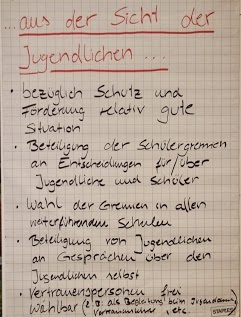 ...aus der Sicht der
Jugendlichen ...
• bezüglich Schutz und
Förderung relativ gute
Situation
• Beteiligung der Schülergremien
an Entscheidungen für/über
Jugendliche und Schüler
• Wahl der Gremien in allen
weiterführenden Schulen
• Beteiligung von Jugendlichen
an Gesprächen über den
Jugendlichen selbst
• Vertrauenspersonen frei
wählbar (z.B. als Begleitung beim Jugendamt,
Vertrauenslehrer, etc.